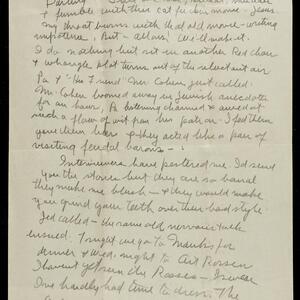 Darling -
& fumble with this cat & chin movie - Jesus
my throat burns with that old movie-writing
impotence, But - allons! We'll make it.
I do nothing but sit in another Red Chair
& wrangle plot turns out of the reluctant air
Pa & "the Friend" Mr. Cohen just called.
Mr. Cohen boomed away in Jewish anecdotes
for an hour, Pa listening charmed & amazed
such a flow of wit from his patron. I fed them
your then beer & they acted like a pair of
visiting feudal barons - !
Interviewers have pestered me. I'd send
you the stories but they are so banal
they make me blush - & they would make
you grind your teeth over their bad style.
Ged called - the same old nervous talk
ensued. Tonight we go to Manks for
dinner & Wed. night to Art Rosson
I haven't yet seen the Rossons - I swear
One hardly had time to dress. The